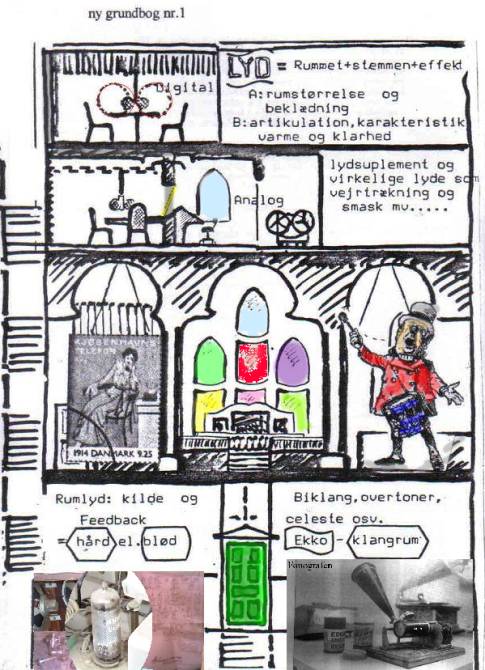 ny grundbog nr.1
LYD = Rummet+stemmen+effekt
Digital
A:rumstørrelse og
beklædning
B:artikulation,karakteristik
varme og klarhed
lydsuplement og
virkelige lyde som
vejrtrækning og
smask mv.....
Analog
KJØBENHAVNS
TELEFON
1914 DANMARK 9.25
Rumlyd: kilde og
Feedback
= hård el. blød
Biklang,overtoner,
celeste osv.
Ekko - klangrum
Fonografen